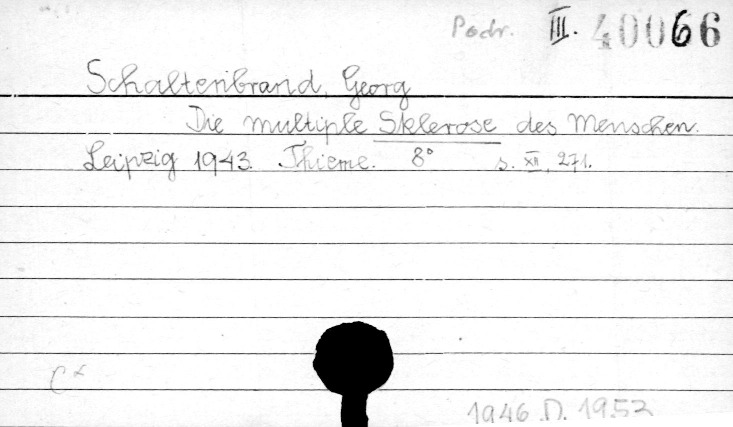 Podr. III. 40066
Schaltenbrand, Georg
Die multiple Sklerose des Menschen.
Leipzig 1943. Thieme. 8° s. XII, 271.
C x
1946 D. 1952